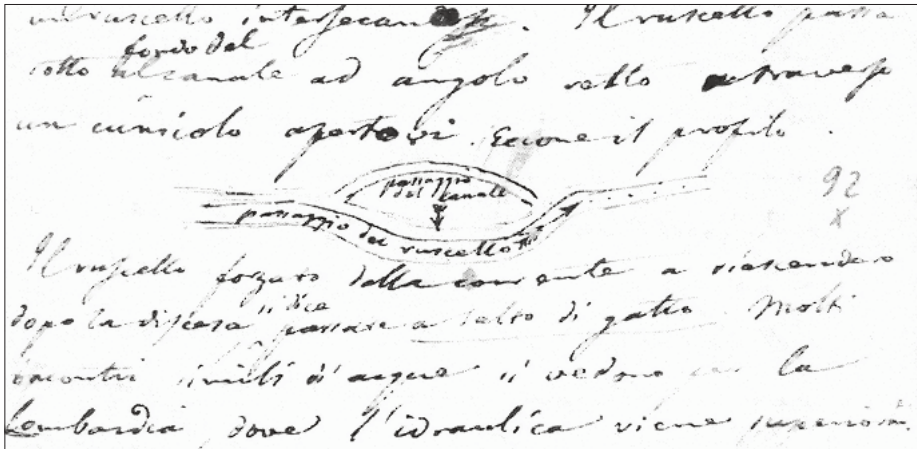 un ruscello intersecan. Il ruscello passa
fondo del
sotto il canale ad angolo retto attraverso
un cunicolo apertovi. Eccone il profilo.
passaggio
del canale
92
x
passaggio del ruscello
Il ruscello forzato dalla corrente a riascendere
si dice
dopo la discesa passare a salto di gatto. Molti
incontri simili d'acque si vedono la
Lombardia dove l'idraulica viene